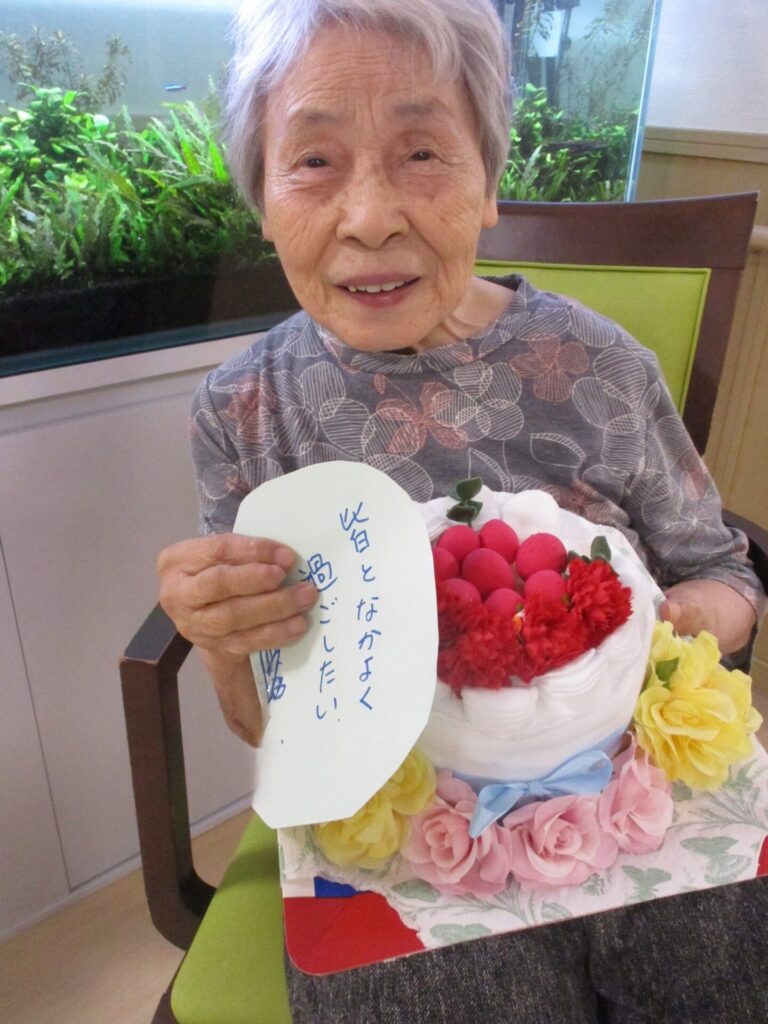 皆となかよく
過ごしたい.